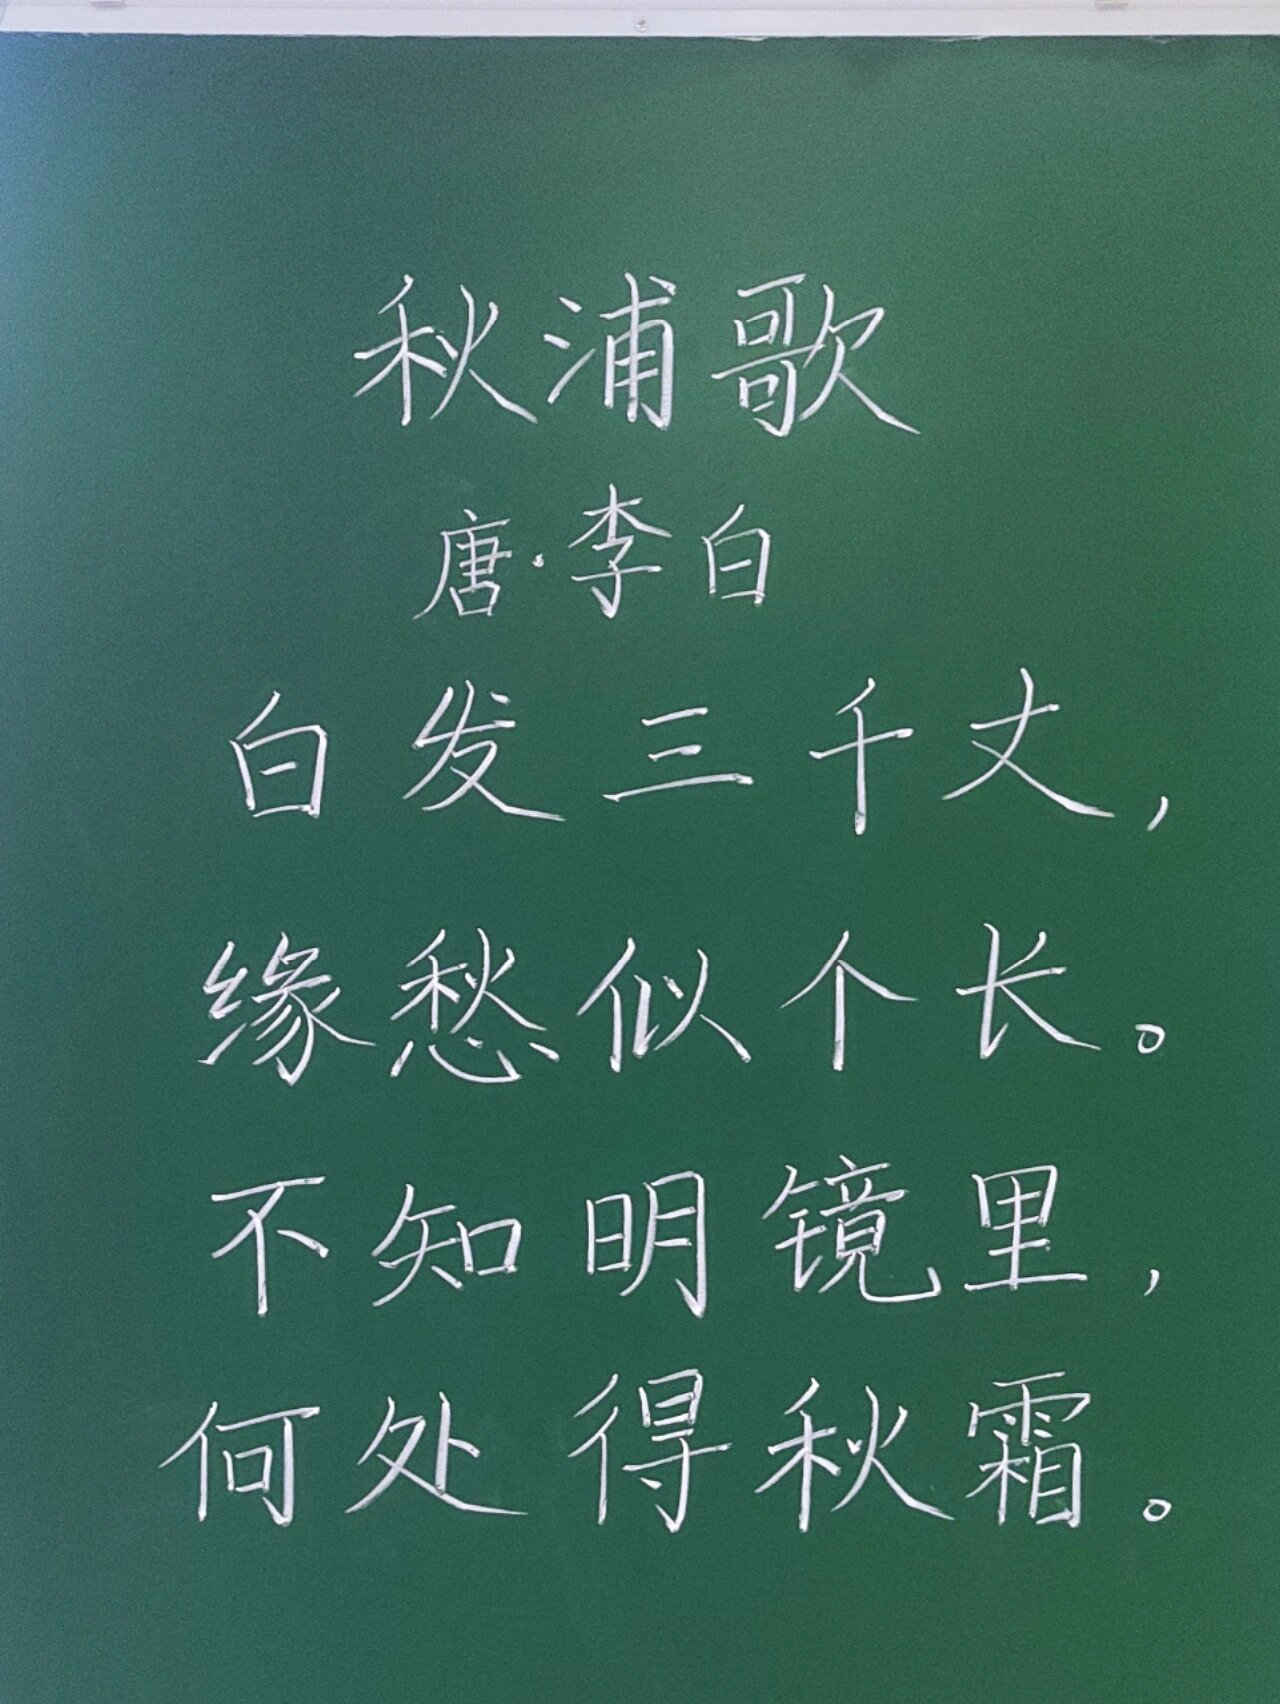 秋浦歌
唐·李白
白发三千丈，
缘愁似个长。
不知明镜里，
何处得秋霜。